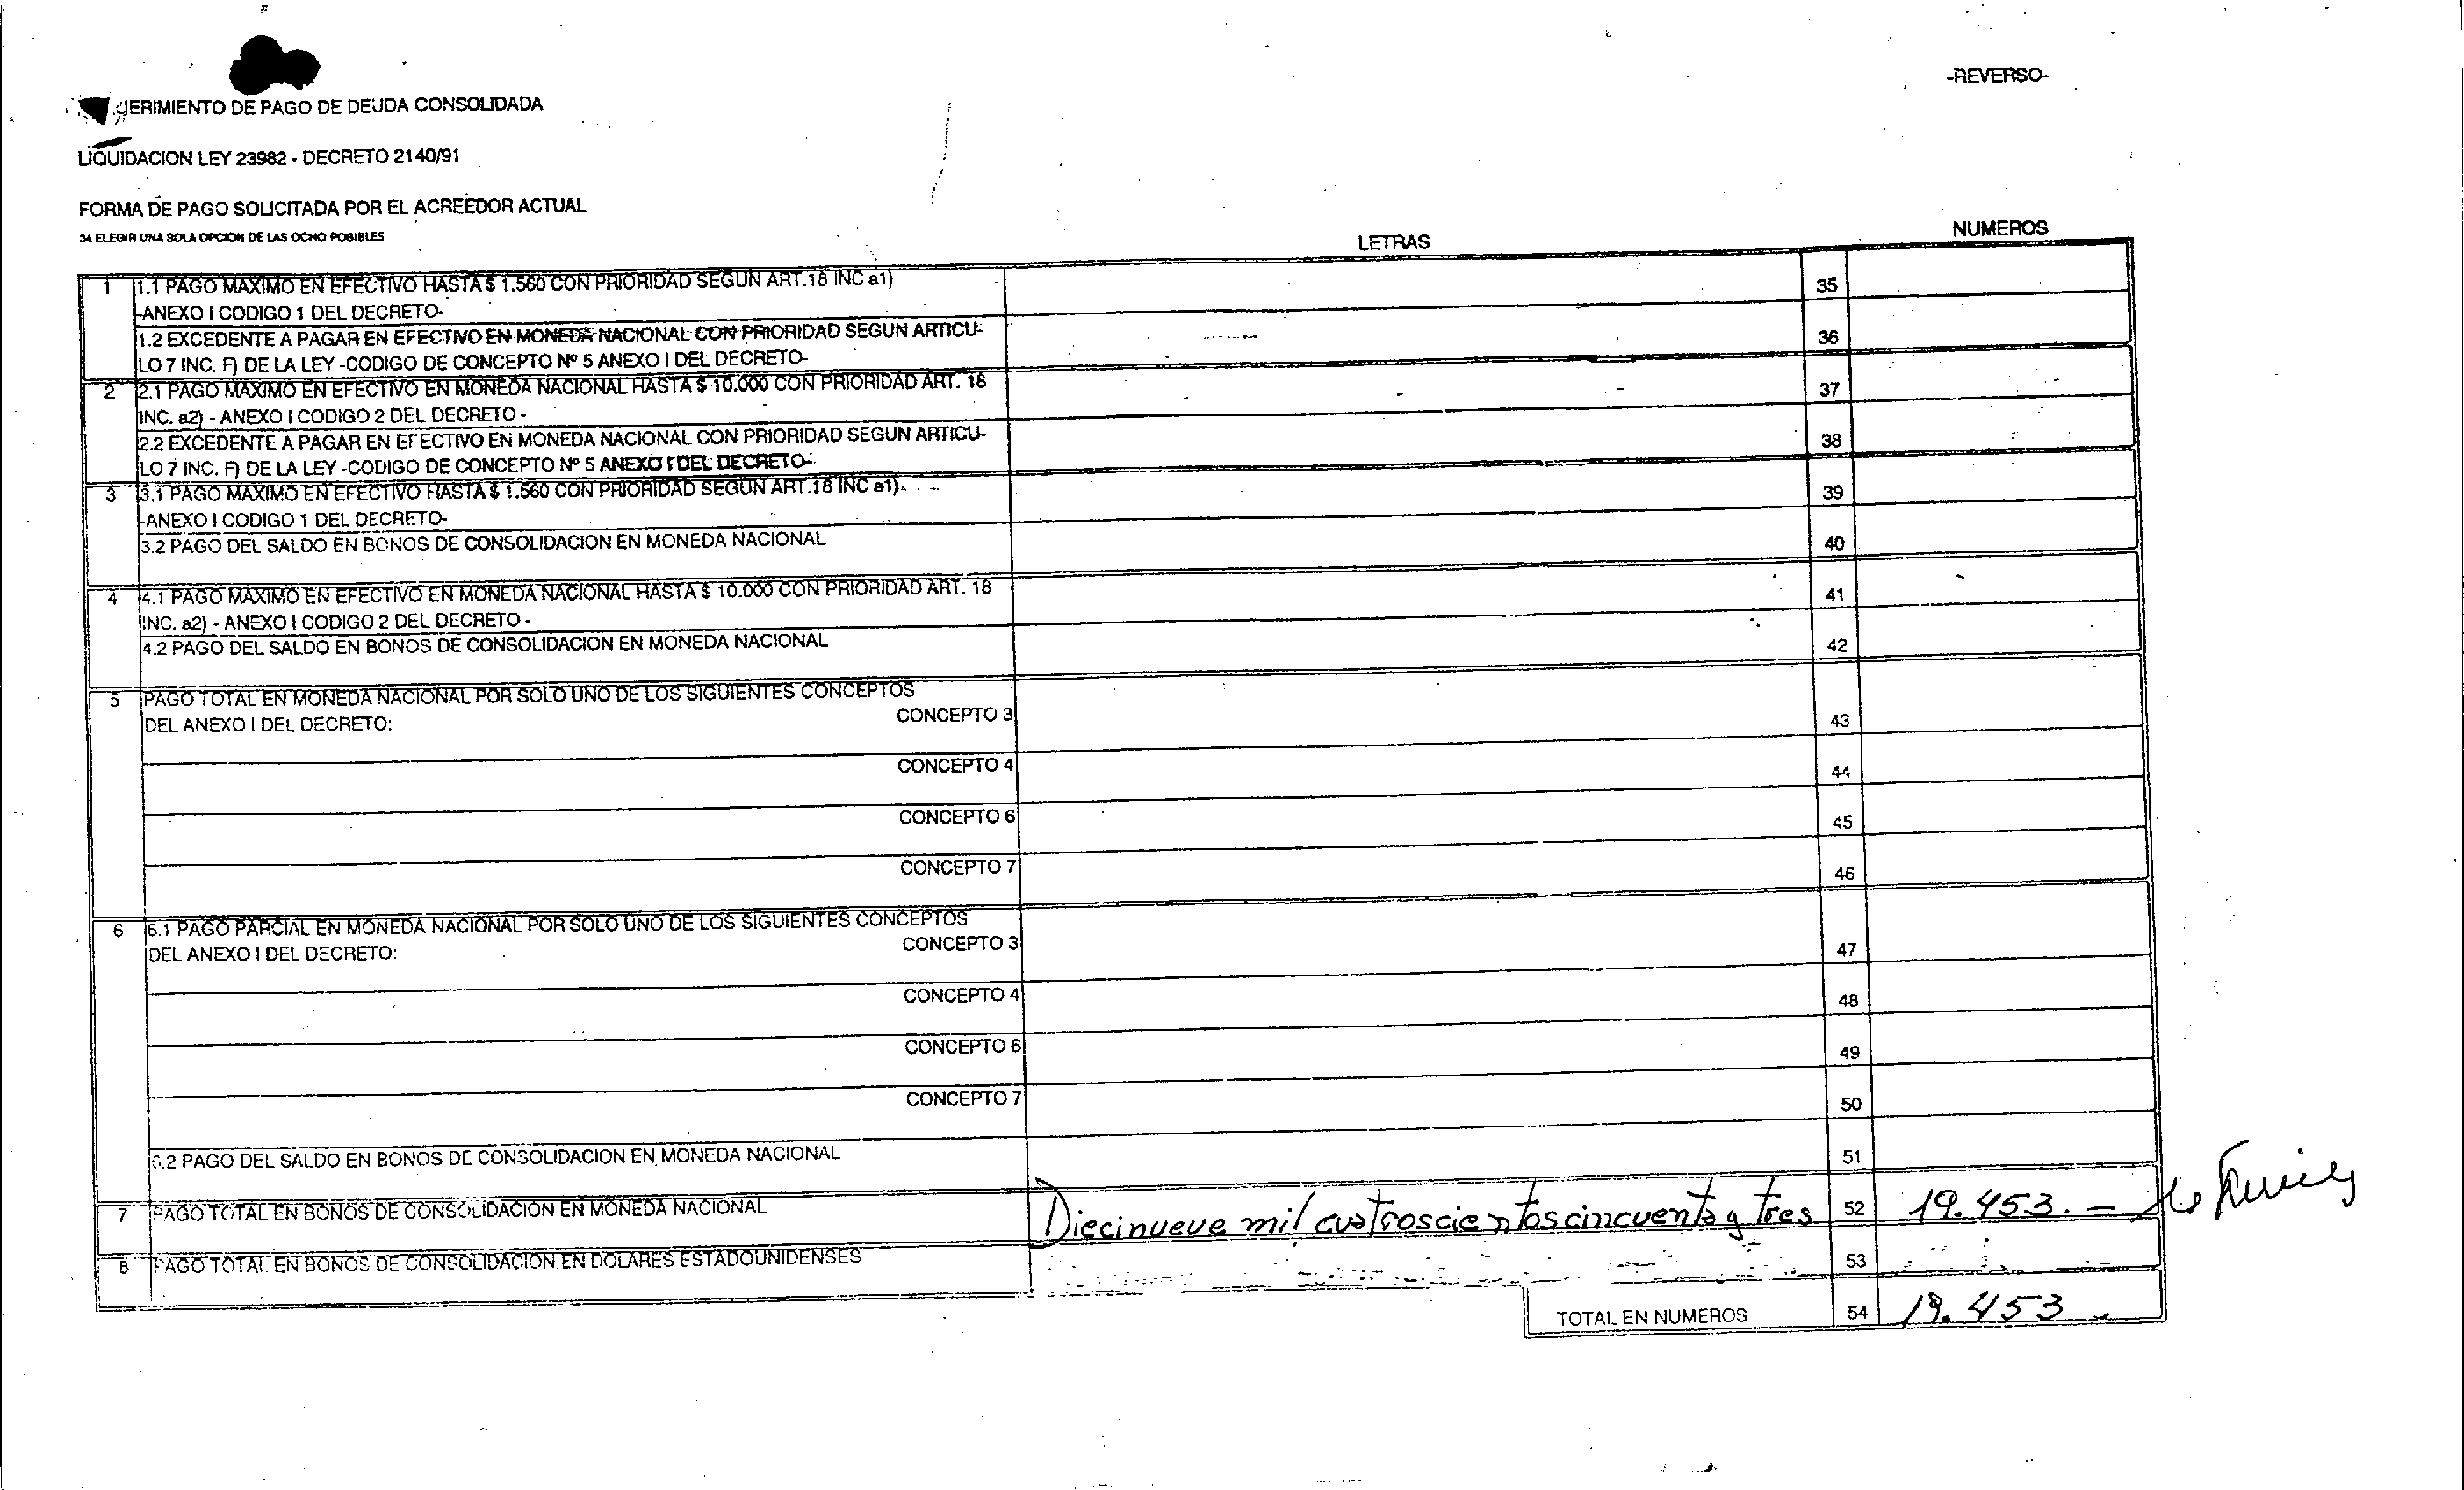 -REVERSO-
UERIMIENTO DE PAGO DE DEUDA CONSOLIDADA
LIQUIDACION LEY 23982 - DECRETO 2140/91
FORMA DE PAGO SOLICITADA POR EL ACREEDOR ACTUAL
34 ELEGIR UNA SOLA OPCION DE LAS OCHO POSIBLES
LETRAS
NUMEROS
1 1.1 PAGO MAXIMO EN EFECTIVO HASTA $ 1.560 CON PRIORIDAD SEGUN ART.18 INC a1) 35
-ANEXO I CODIGO 1 DEL DECRETO-
1.2 EXCEDENTE A PAGAR EN EFECTIVO EN MONEDA NACIONAL CON PRIORIDAD SEGUN ARTICU- 36
LO 7 INC. F) DE LA LEY -CODIGO DE CONCEPTO Nº 5 ANEXO I DEL DECRETO-
2 2.1 PAGO MAXIMO EN EFECTIVO EN MONEDA NACIONAL HASTA $ 10.000 CON PRIORIDAD ART. 18 37
INC. a2) - ANEXO I CODIGO 2 DEL DECRETO -
2.2 EXCEDENTE A PAGAR EN EFECTIVO EN MONEDA NACIONAL CON PRIORIDAD SEGUN ARTICU- 38
LO 7 INC. F) DE LA LEY -CODIGO DE CONCEPTO Nº 5 ANEXO I DEL DECRETO-
3 3.1 PAGO MAXIMO EN EFECTIVO HASTA $ 1.560 CON PRIORIDAD SEGUN ART.18 INC a1) 39
-ANEXO I CODIGO 1 DEL DECRETO-
3.2 PAGO DEL SALDO EN BONOS DE CONSOLIDACION EN MONEDA NACIONAL 40
4 4.1 PAGO MAXIMO EN EFECTIVO EN MONEDA NACIONAL HASTA $ 10.000 CON PRIORIDAD ART. 18 41
INC. a2) - ANEXO I CODIGO 2 DEL DECRETO -
4.2 PAGO DEL SALDO EN BONOS DE CONSOLIDACION EN MONEDA NACIONAL 42
5 PAGO TOTAL EN MONEDA NACIONAL POR SOLO UNO DE LOS SIGUIENTES CONCEPTOS
DEL ANEXO I DEL DECRETO: CONCEPTO 3 43
CONCEPTO 4 44
CONCEPTO 6 45
CONCEPTO 7 46
6 6.1 PAGO PARCIAL EN MONEDA NACIONAL POR SOLO UNO DE LOS SIGUIENTES CONCEPTOS
DEL ANEXO I DEL DECRETO: CONCEPTO 3 47
CONCEPTO 4 48
CONCEPTO 6 49
CONCEPTO 7 50
6.2 PAGO DEL SALDO EN BONOS DE CONSOLIDACION EN MONEDA NACIONAL 51
7 PAGO TOTAL EN BONOS DE CONSOLIDACION EN MONEDA NACIONAL Diecinueve mil cuatroscientos cincuenta y tres 52 19.453.-
8 PAGO TOTAL EN BONOS DE CONSOLIDACION EN DOLARES ESTADOUNIDENSES 53
TOTAL EN NUMEROS 54 19.453.-